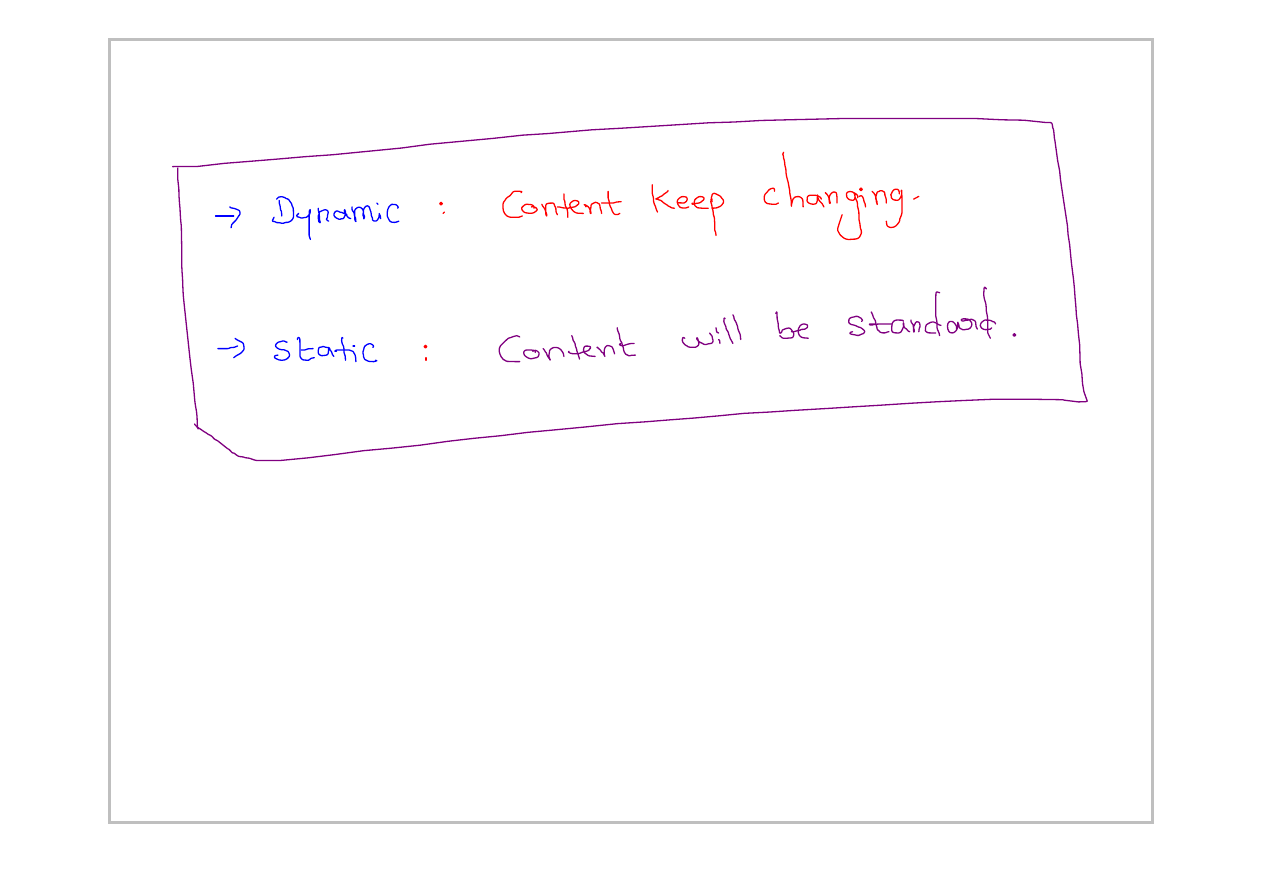 → Dynamic : Content Keep changing.
→ Static : Content will be standard.